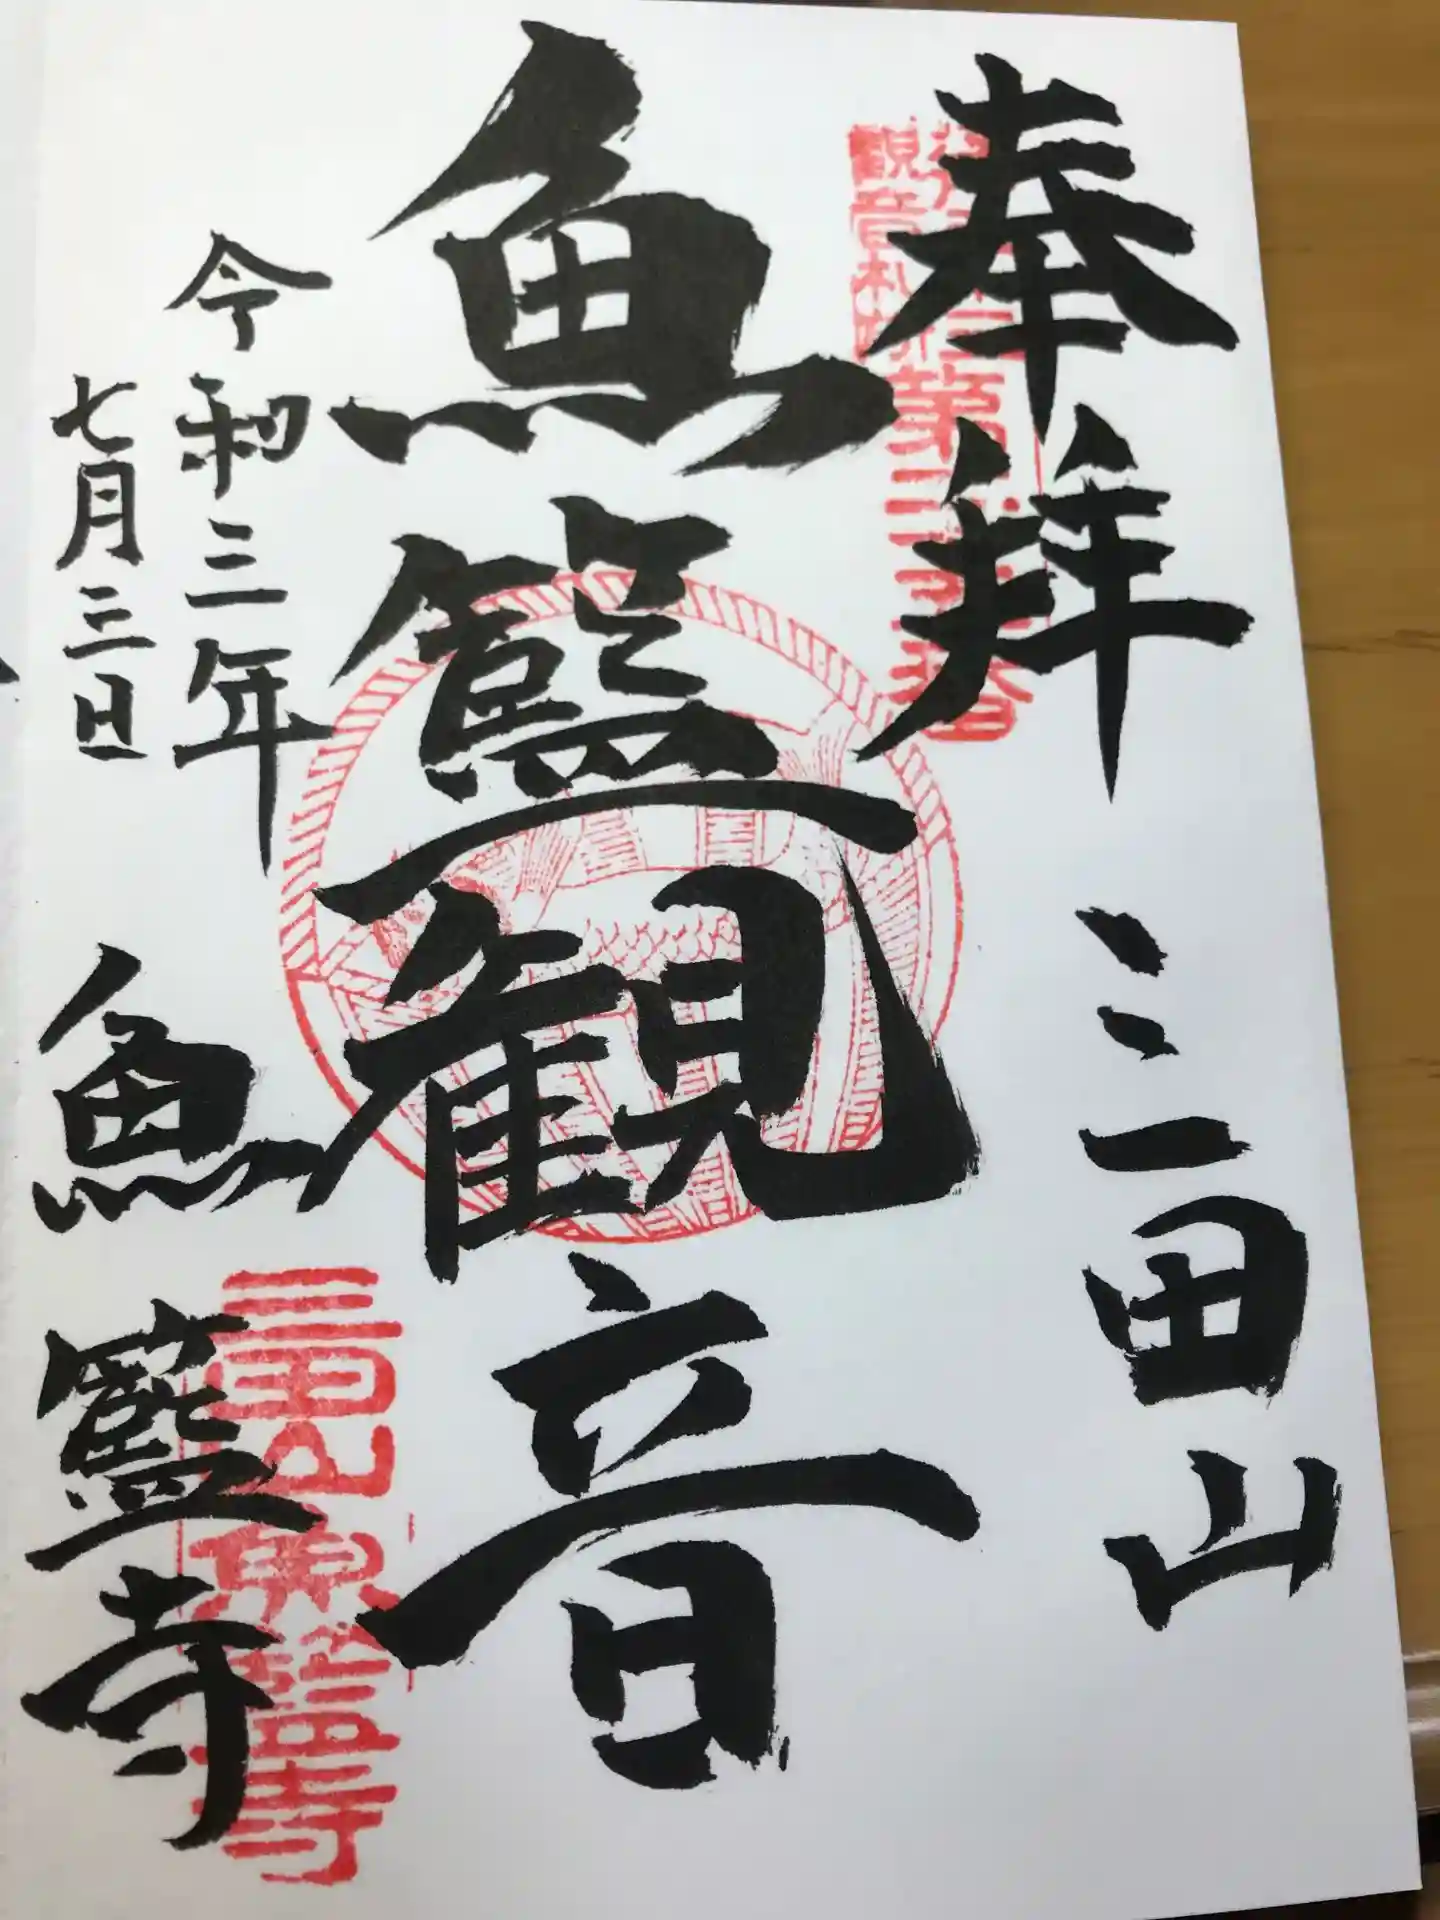 奉拝 三田山
魚籃観音
令和三年
七月三日
魚籃寺
観音札所
第二十五番
三田山魚籃寺